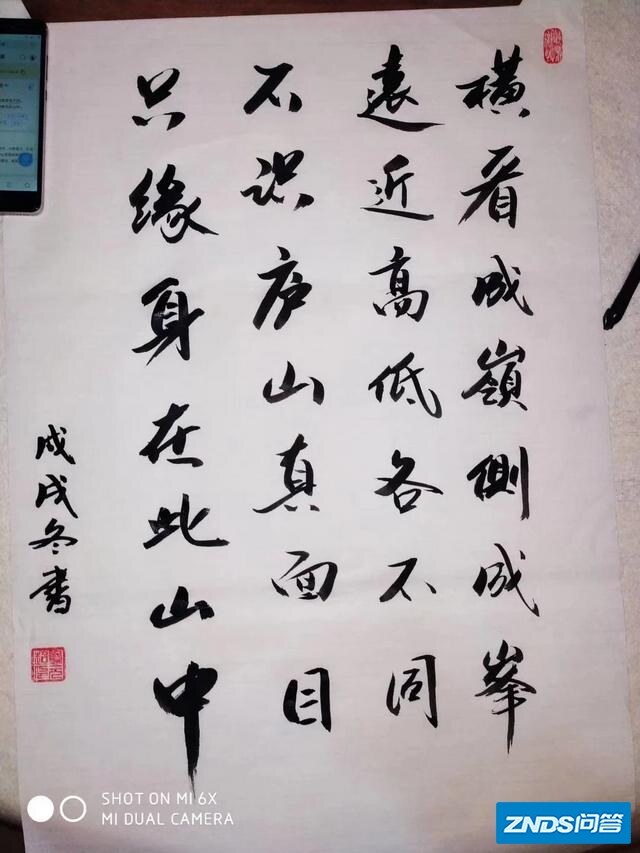 横看成嶺側成峯
遠近高低各不同
不识庐山真面目
只缘身在此山中
戊戌冬书
SHOT ON MI 6X
MI DUAL CAMERA
ZNDS问答